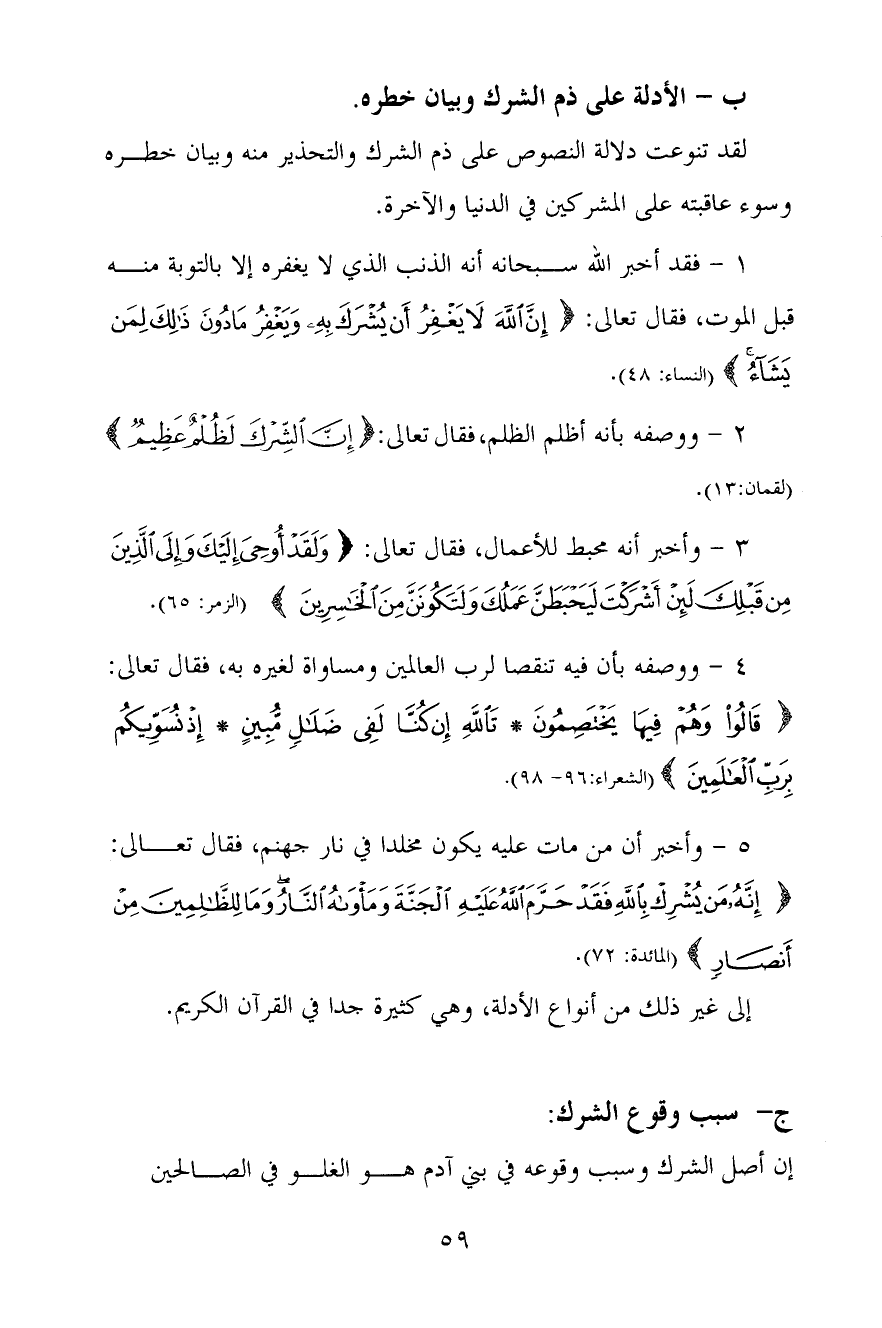 ب – الأدلة على ذم الشرك وبيان خطره.
لقد تنوعت دلالة النصوص على ذم الشرك والتحذير منه وبيان خطـــره
وسوء عاقبته على المشركين في الدنيا والآخرة.
١ – فقد أخبر الله ســـبحانه أنه الذنب الذي لا يغفره إلا بالتوبة منـــه
قبل الموت، فقال تعالى: ﴿ إِنَّ ٱللَّهَ لَا يَغْفِرُ أَن يُشْرَكَ بِهِۦ وَيَغْفِرُ مَادُونَ ذَٰلِكَ لِمَن
يَشَآءُۚ ﴾ (النساء: ٤٨).
٢ – ووصفه بأنه أظلم الظلم، فقال تعالى: ﴿ إِنَّ ٱلشِّرْكَ لَظُلْمٌ عَظِيمٌ ﴾
(لقمان:١٣).
٣ – وأخبر أنه محبط للأعمال، فقال تعالى: ﴿ وَلَقَدْ أُوحِىَ إِلَيْكَ وَإِلَى ٱلَّذِينَ
مِن قَبْلِكَ لَئِنْ أَشْرَكْتَ لَيَحْبَطَنَّ عَمَلُكَ وَلَتَكُونَنَّ مِنَ ٱلْخَٰسِرِينَ ﴾ (الزمر: ٦٥).
٤ – ووصفه بأن فيه تنقصا لرب العالمين ومساواة لغيره به، فقال تعالى:
﴿ قَالُوا۟ وَهُمْ فِيهَا يَخْتَصِمُونَ * تَٱللَّهِ إِن كُنَّا لَفِى ضَلَٰلٍ مُّبِينٍ * إِذْ نُسَوِّيكُم
بِرَبِّ ٱلْعَٰلَمِينَ ﴾ (الشعراء:٩٦– ٩٨).
٥ – وأخبر أن من مات عليه يكون مخلدا في نار جهنم، فقال تعـــالى:
﴿ إِنَّهُۥ مَن يُشْرِكْ بِٱللَّهِ فَقَدْ حَرَّمَ ٱللَّهُ عَلَيْهِ ٱلْجَنَّةَ وَمَأْوَىٰهُ ٱلنَّارُۖ وَمَا لِلظَّٰلِمِينَ مِنْ
أَنصَارٍ ﴾ (المائدة: ٧٢).
إلى غير ذلك من أنواع الأدلة، وهي كثيرة جدا في القرآن الكريم.
ج– سبب وقوع الشرك:
إن أصل الشرك وسبب وقوعه في بني آدم هـــو الغلـــو في الصـــالحين
٥٩